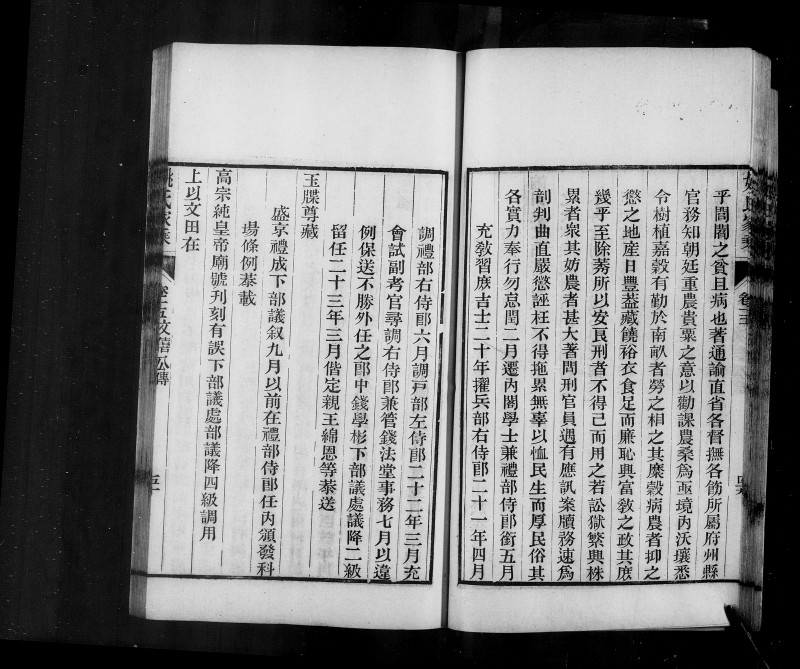 乎閭閻之貧且病也著通諭直省各督撫各飭所屬府州縣
官務知朝廷重農貴粟之意以勸課農桑爲亟境內沃壤悉
令樹植嘉穀有勤於南畝者勞之相之其糜穀病農者抑之
懲之地產日豐蓋藏饒裕衣食足而廉恥興富敎之政其庶
幾乎至除莠所以安良刑者不得已而用之若訟獄繁興株
累者衆其妨農者甚大著問刑官員遇有應訊案牘務速爲
剖判曲直嚴懲誣枉不得拖累無辜以恤民生而厚民俗其
各實力奉行勿怠閏二月遷內閣學士兼禮部侍郎銜五月
充敎習庶吉士二十年擢兵部右侍郎二十一年四月
調禮部右侍郎六月調戸部左侍郎二十二年三月充
會試副考官尋調右侍郎兼管錢法堂事務七月以違
例保送不勝外任之郎中錢學彬下部議處議降二級
留任二十三年三月偕定親王綿恩等恭送
玉牒尊藏
盛京禮成下部議叙九月以前在禮部侍郎任內頒發科
場條例恭載
高宗純皇帝廟號刋刻有誤下部議處部議降四級調用
上以文田在
姚氏家乘